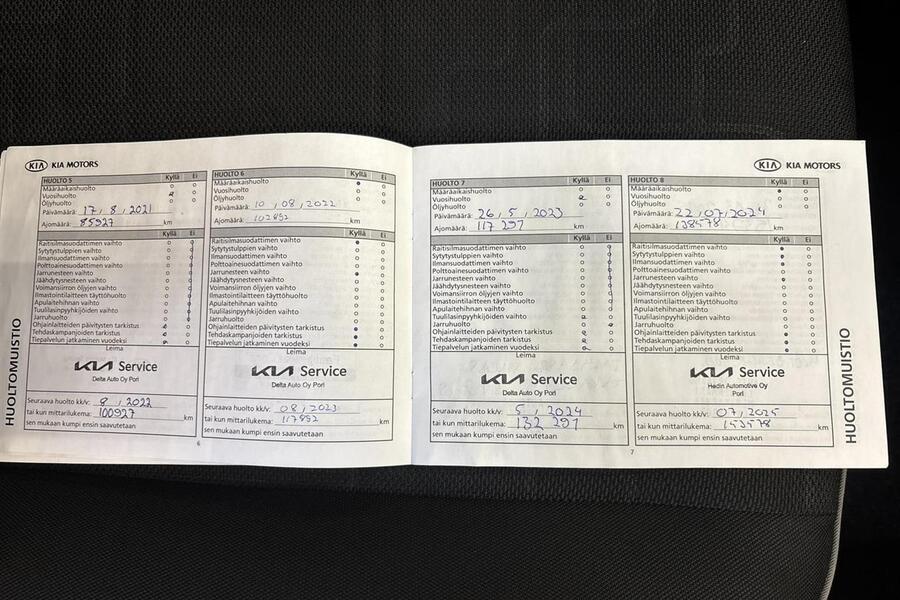 KIA KIA MOTORS
HUOLTO 5 Kyllä Ei
Määräaikaishuolto
Vuosihuolto
Öljyhuolto
Päivämäärä: 17, 8, 2021
Ajomäärä: 85927 km
Kyllä Ei
Raitisilmasuodattimen vaihto
Sytytystulppien vaihto
Ilmansuodattimen vaihto
Polttoainesuodattimen vaihto
Jarrunesteen vaihto
Jäähdytysnesteen vaihto
Voimansiirron öljyjen vaihto
Ilmastointilaitteen täyttöhuolto
Apulaitehihnan vaihto
Tuulilasinpyyhkijöiden vaihto
Jarruhuolto
Ohjainlaitteiden päivitysten tarkistus
Tehdaskampanjoiden tarkistus
Tiepalvelun jatkaminen vuodeksi
Leima
KIA Service
Delta Auto Oy Pori
Seuraava huolto kk/v: 8, 2022
tai kun mittarilukema: 100927 km
sen mukaan kumpi ensin saavutetaan
HUOLTO 6 Kyllä Ei
Määräaikaishuolto
Vuosihuolto
Öljyhuolto
Päivämäärä: 10, 08, 2022
Ajomäärä: 102892 km
Kyllä Ei
Raitisilmasuodattimen vaihto
Sytytystulppien vaihto
Ilmansuodattimen vaihto
Polttoainesuodattimen vaihto
Jarrunesteen vaihto
Jäähdytysnesteen vaihto
Voimansiirron öljyjen vaihto
Ilmastointilaitteen täyttöhuolto
Apulaitehihnan vaihto
Tuulilasinpyyhkijöiden vaihto
Jarruhuolto
Ohjainlaitteiden päivitysten tarkistus
Tehdaskampanjoiden tarkistus
Tiepalvelun jatkaminen vuodeksi
Leima
KIA Service
Delta Auto Oy Pori
Seuraava huolto kk/v: 08, 2023
tai kun mittarilukema: 117892 km
sen mukaan kumpi ensin saavutetaan
HUOLTOMUISTIO
6
KIA KIA MOTORS
HUOLTO 7 Kyllä Ei
Määräaikaishuolto
Vuosihuolto
Öljyhuolto
Päivämäärä: 26, 5, 2023
Ajomäärä: 117 291 km
Kyllä Ei
Raitisilmasuodattimen vaihto
Sytytystulppien vaihto
Ilmansuodattimen vaihto
Polttoainesuodattimen vaihto
Jarrunesteen vaihto
Jäähdytysnesteen vaihto
Voimansiirron öljyjen vaihto
Ilmastointilaitteen täyttöhuolto
Apulaitehihnan vaihto
Tuulilasinpyyhkijöiden vaihto
Jarruhuolto
Ohjainlaitteiden päivitysten tarkistus
Tehdaskampanjoiden tarkistus
Tiepalvelun jatkaminen vuodeksi
Leima
KIA Service
Delta Auto Oy Pori
Seuraava huolto kk/v: 5, 2024
tai kun mittarilukema: 132 291 km
sen mukaan kumpi ensin saavutetaan
HUOLTO 8 Kyllä Ei
Määräaikaishuolto
Vuosihuolto
Öljyhuolto
Päivämäärä: 22, 07, 2024
Ajomäärä: 138478 km
Kyllä Ei
Raitisilmasuodattimen vaihto
Sytytystulppien vaihto
Ilmansuodattimen vaihto
Polttoainesuodattimen vaihto
Jarrunesteen vaihto
Jäähdytysnesteen vaihto
Voimansiirron öljyjen vaihto
Ilmastointilaitteen täyttöhuolto
Apulaitehihnan vaihto
Tuulilasinpyyhkijöiden vaihto
Jarruhuolto
Ohjainlaitteiden päivitysten tarkistus
Tehdaskampanjoiden tarkistus
Tiepalvelun jatkaminen vuodeksi
Leima
KIA Service
Hedin Automotive Oy
Pori
Seuraava huolto kk/v: 07, 2025
tai kun mittarilukema: 153578 km
sen mukaan kumpi ensin saavutetaan
7
HUOLTOMUISTIO